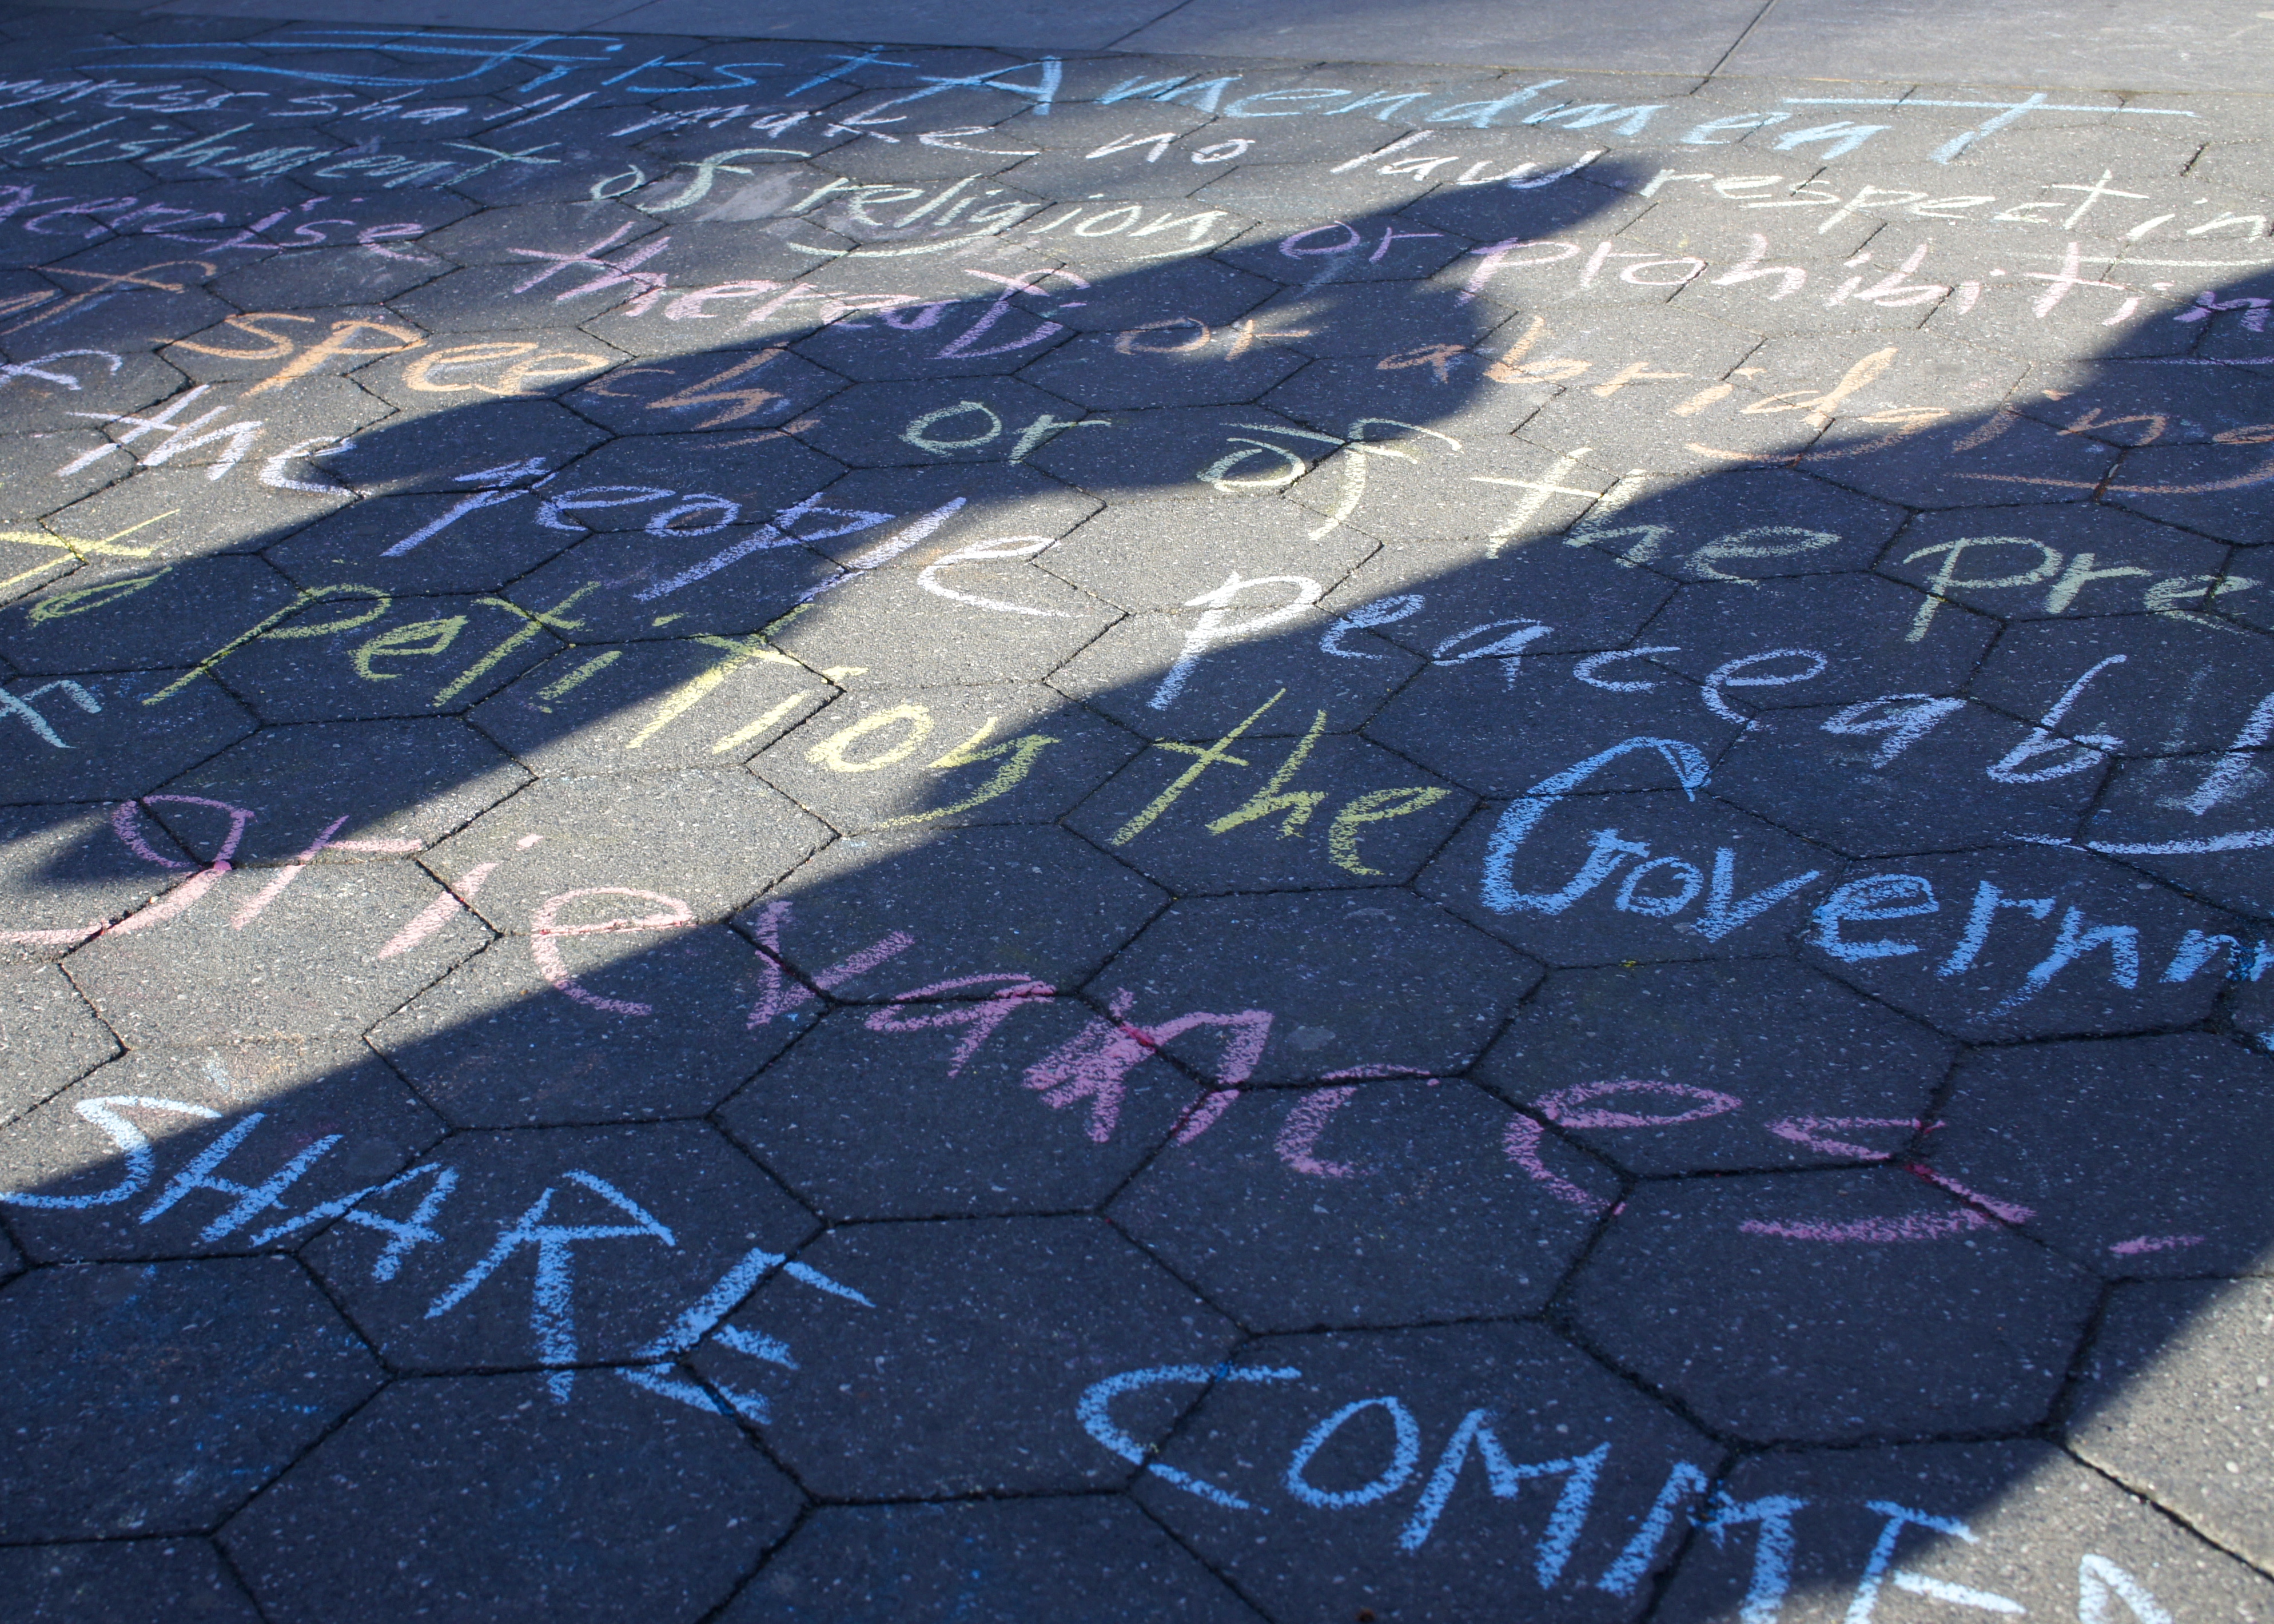 First Amendment
ngress shall make no law respectin
blishment of religion, or prohibitin
xercise thereof; or abridging
of speech, or of the pre
f the people peaceably
to petition the Governm
grievances.
SHARE COMMITED